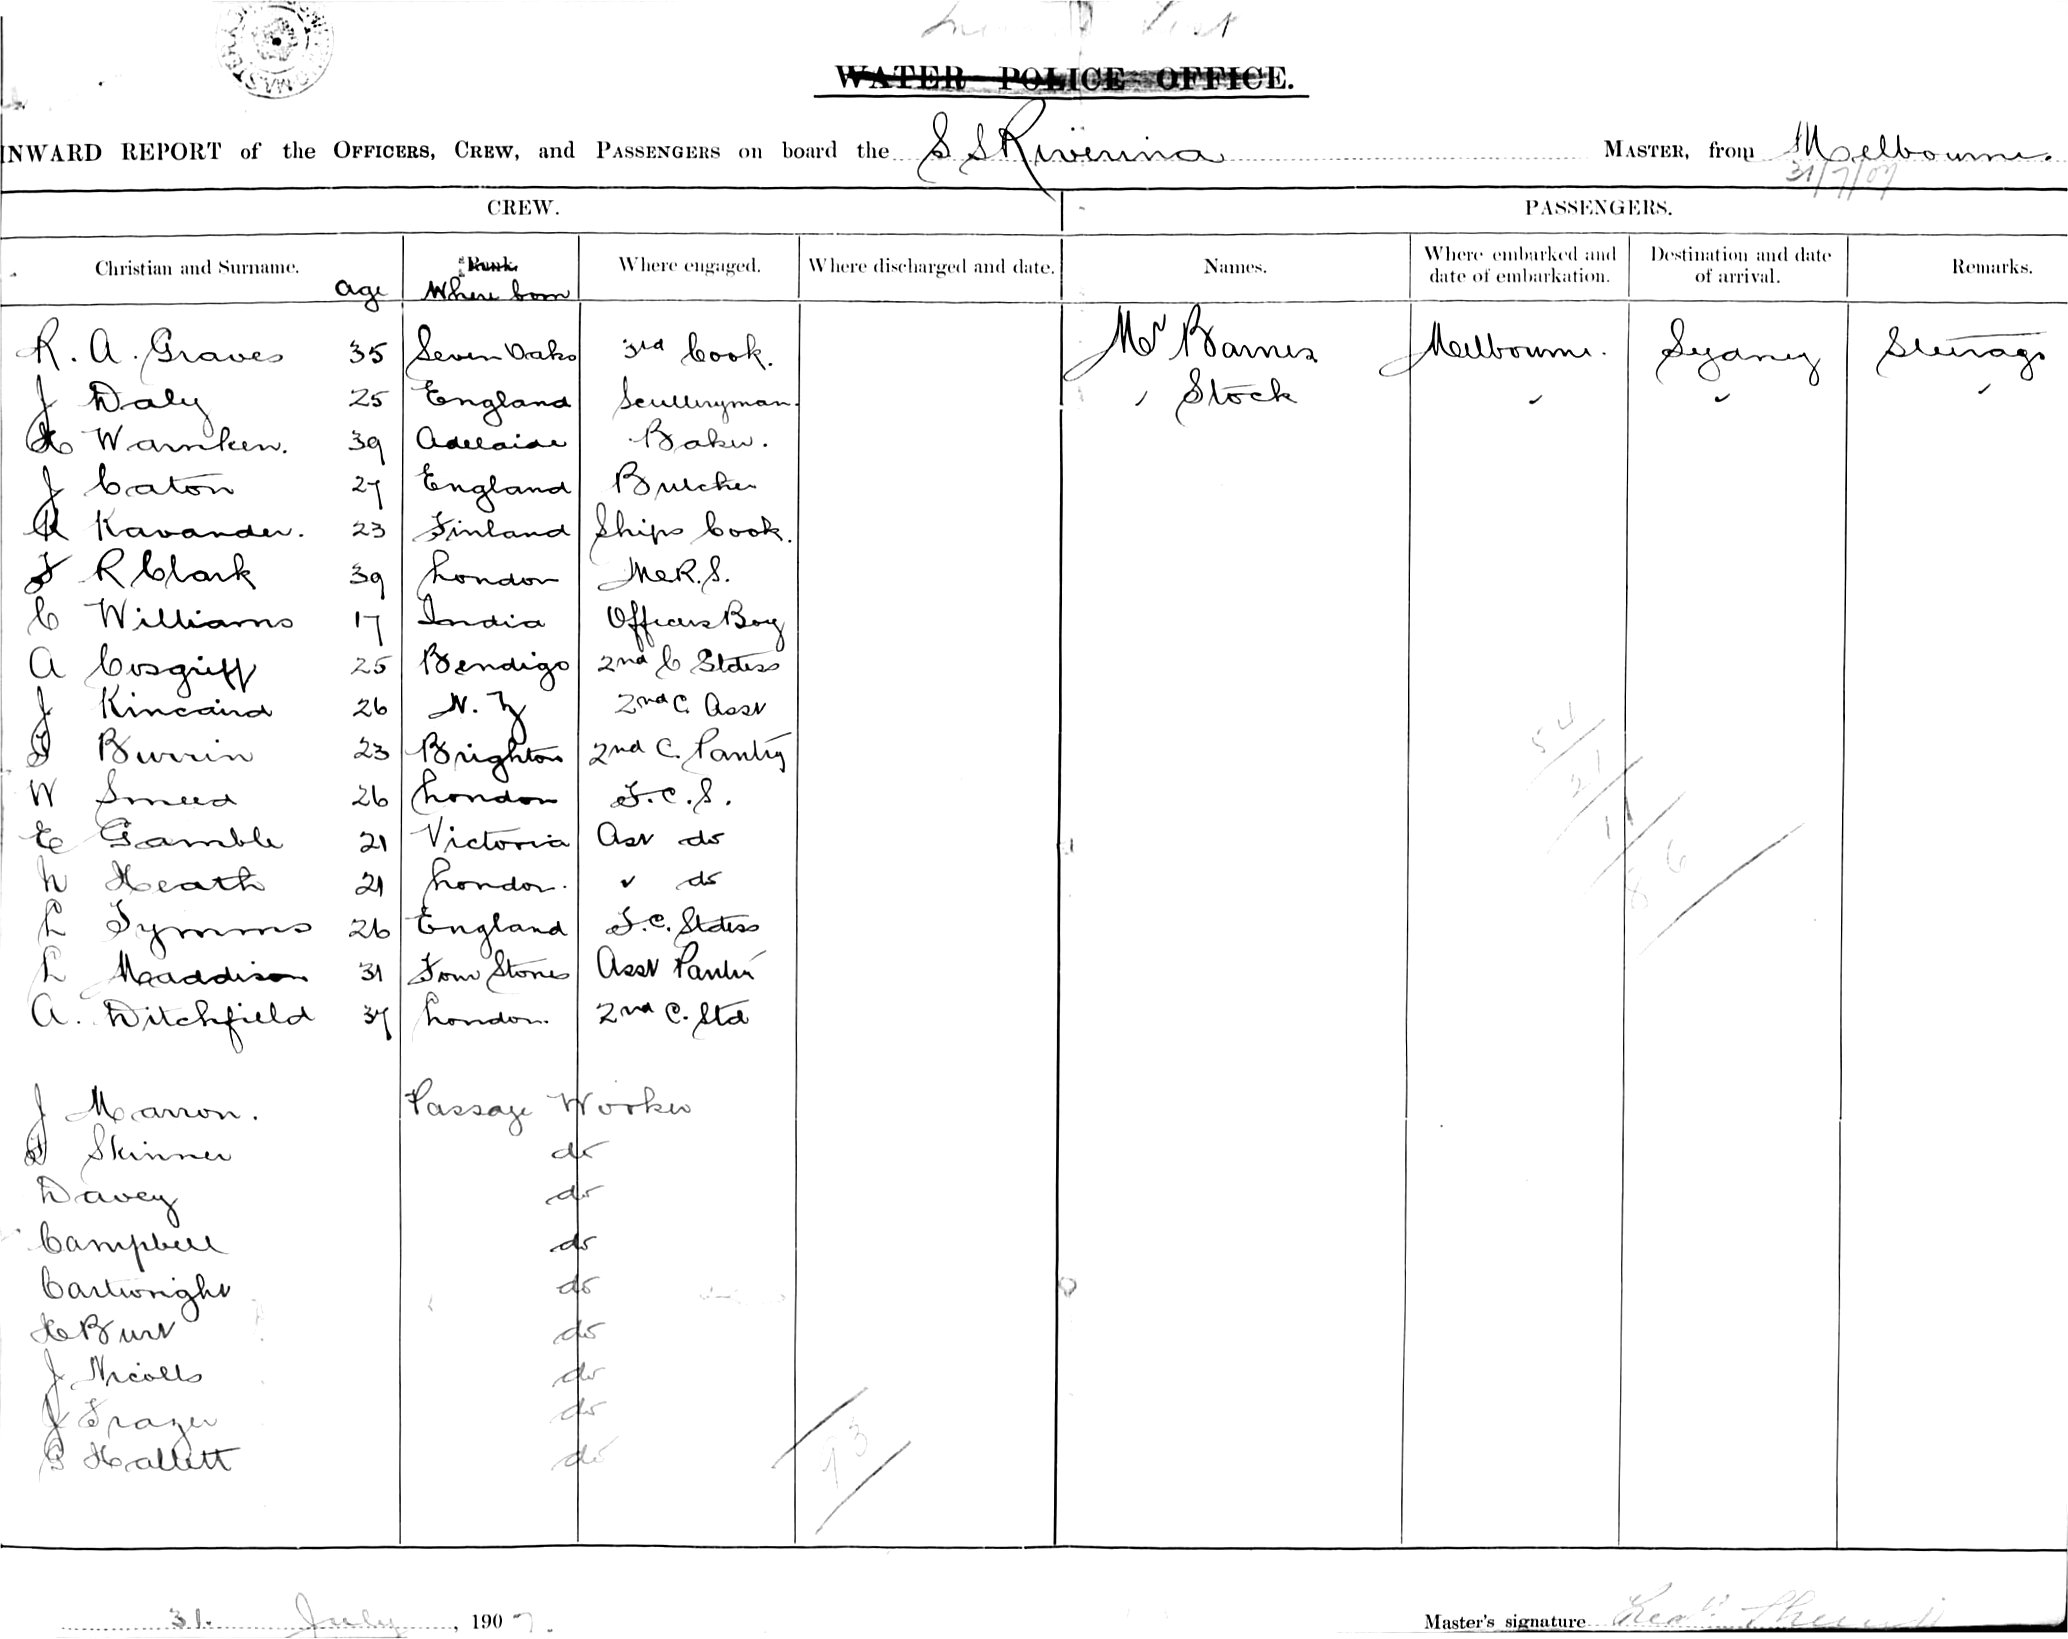 WATER POLICE OFFICE.
INWARD REPORT of the OFFICERS, CREW, and PASSENGERS on board the S S Riverina MASTER, from Melbourne.
31/7/07
CREW. PASSENGERS.
Christian and Surname. age Rank Where born Where engaged. Where discharged and date. Names. Where embarked and date of embarkation. Destination and date of arrival. Remarks.
R. A. Graves 35 Seven Oaks 3rd Cook. Mr Barnes Melbourne. Sydney Steerage
J Daly 25 England Sculleryman. " Stock " " "
H Warnken. 39 Adelaide Baker.
J Caton 27 England Butcher
K Kavander. 23 Finland Ships Cook.
F R Clark 39 London M.R.S.
C Williams 17 India Officers Boy
A Cosgriff 25 Bendigo 2nd C Stdess
J Kincaird 26 N. Z 2nd C. Asst
F Burrin 23 Brighton 2nd C. Pantry
W Smeed 26 London F.C.S.
E Gamble 21 Victoria Ast do
W Heath 21 London. " do
L Tymms 26 England F.C. Stdess
L Maddison 31 Four Stones Asst Pantry
A. Ditchfield 37 London. 2nd C. Std
J Marron. Passage Worker
F Skinner do
Davey do
Campbell do
Cartwright do
H Burt do
J Nicolls do
J Frazer do
G Hallett do
54
21
11
86
93
31. July, 1907. Master's signature